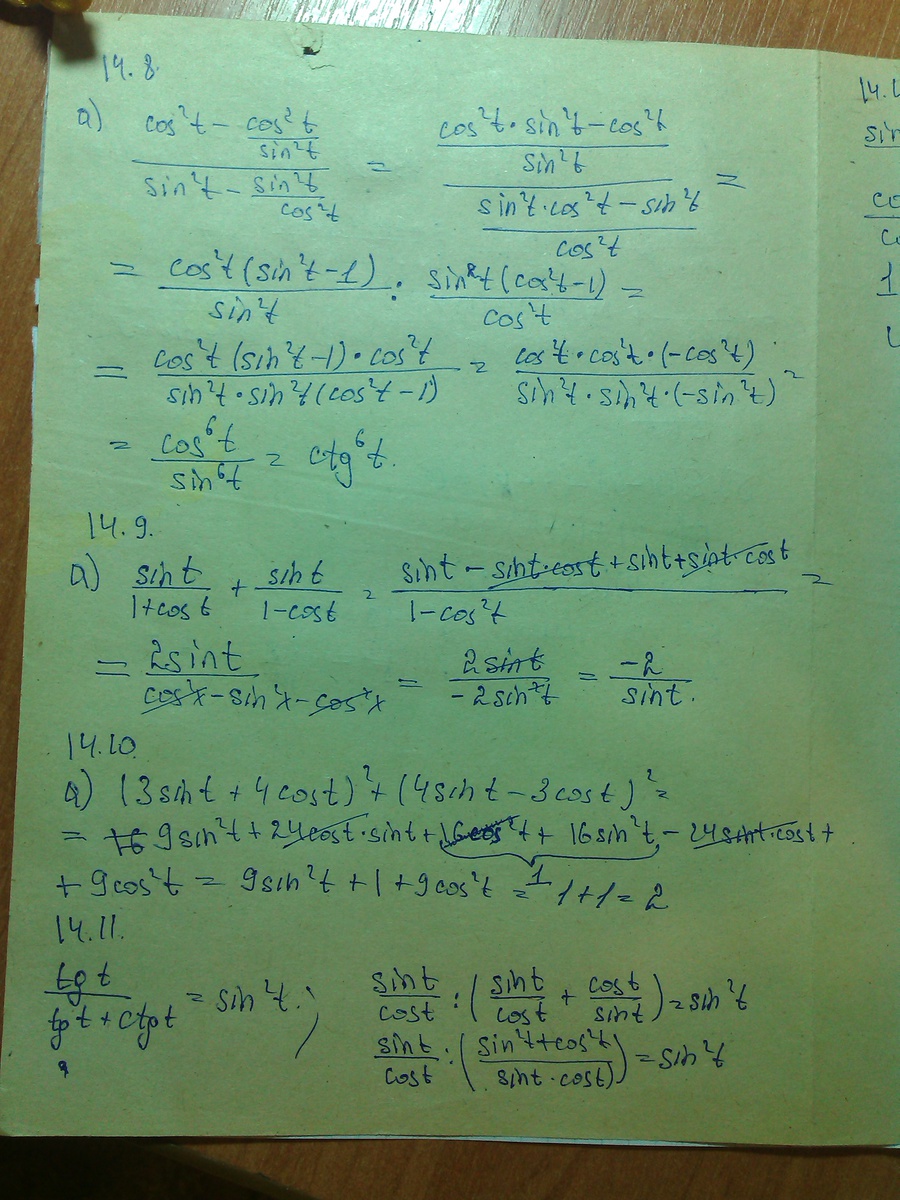 14.8
a) (cos²t − cos²t/sin²t)/(sin²t − sin²t/cos²t) = ((cos²t·sin²t − cos²t)/sin²t)/((sin²t·cos²t − sin²t)/cos²t) =
= cos²t(sin²t−1)/sin²t : sin²t(cos²t−1)/cos²t =
= cos²t(sin²t−1)·cos²t/(sin²t·sin²t(cos²t−1)) = cos²t·cos²t·(−cos²t)/(sin²t·sin²t·(−sin²t)) =
= cos⁶t/sin⁶t = ctg⁶t.
14.9.
a) sint/(1+cost) + sint/(1−cost) = (sint − sint·cost + sint + sint·cost)/(1−cos²t) =
= 2sint/(cos²x − sin²x − cos²x) = 2sint/(−2sin²t) = −2/sint.
14.10
a) (3sint + 4cost)² + (4sint − 3cost)² =
= 9sin²t + 24cost·sint + 16cos²t + 16sin²t − 24sint·cost +
1
+ 9cos²t = 9sin²t + 1 + 9cos²t = 1+1 = 2
14.11.
tgt/(tgt + ctgt) = sin²t.; sint/cost : (sint/cost + cost/sint) = sin²t
sint/cost : ((sin²t+cos²t)/(sint·cost)) = sin²t
14.
sin
co
c
1